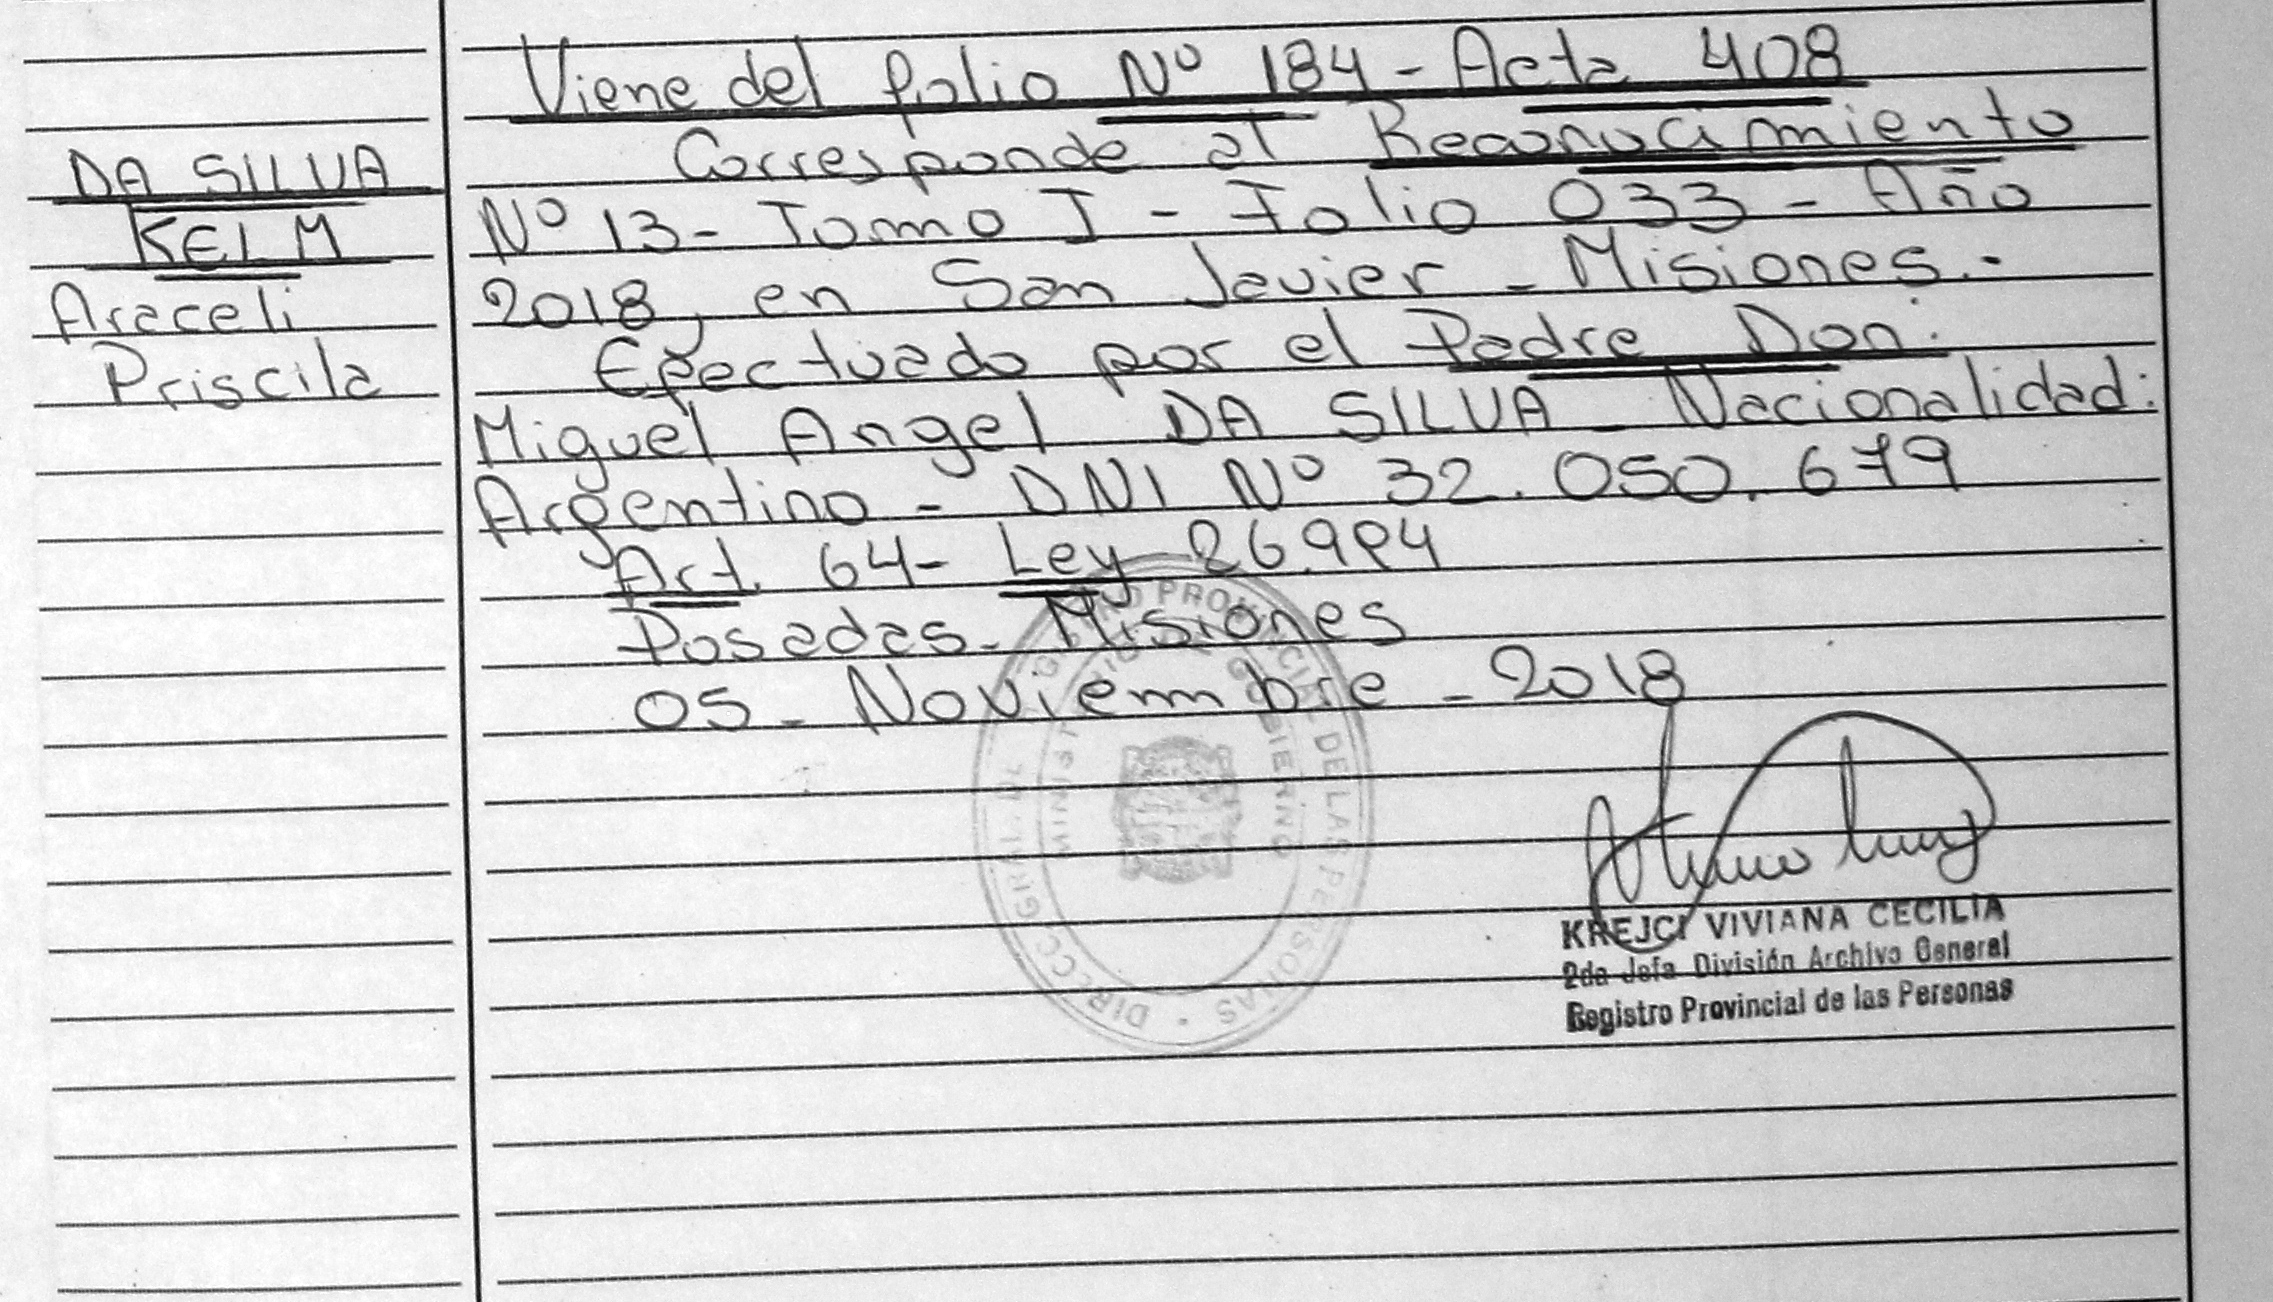 Viene del folio Nº 184 - Acta 408
DA SILVA
KELM
Araceli
Priscila
Corresponde al Reconocimiento
Nº 13 - Tomo I - Folio 033 - Año
2018, en San Javier - Misiones.-
Efectuado por el Padre Don:
Miguel Angel DA SILVA - Nacionalidad:
Argentino - DNI Nº 32.050.679
Art. 64 - Ley 26.994
Posadas - Misiones
05 - Noviembre - 2018
PROVINCIAL DE LAS PERSONAS
MINISTERIO DE GOBIERNO
KREJCI VIVIANA CECILIA
2da Jefa División Archivo General
Registro Provincial de las Personas